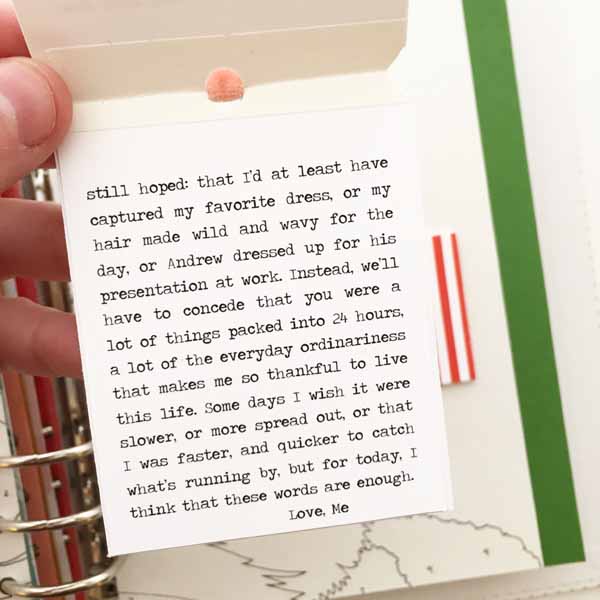 still hoped: that I'd at least have
captured my favorite dress, or my
hair made wild and wavy for the
day, or Andrew dressed up for his
presentation at work. Instead, we'll
have to concede that you were a
lot of things packed into 24 hours,
a lot of the everyday ordinariness
that makes me so thankful to live
this life. Some days I wish it were
slower, or more spread out, or that
I was faster, and quicker to catch
what's running by, but for today, I
think that these words are enough.
Love, Me